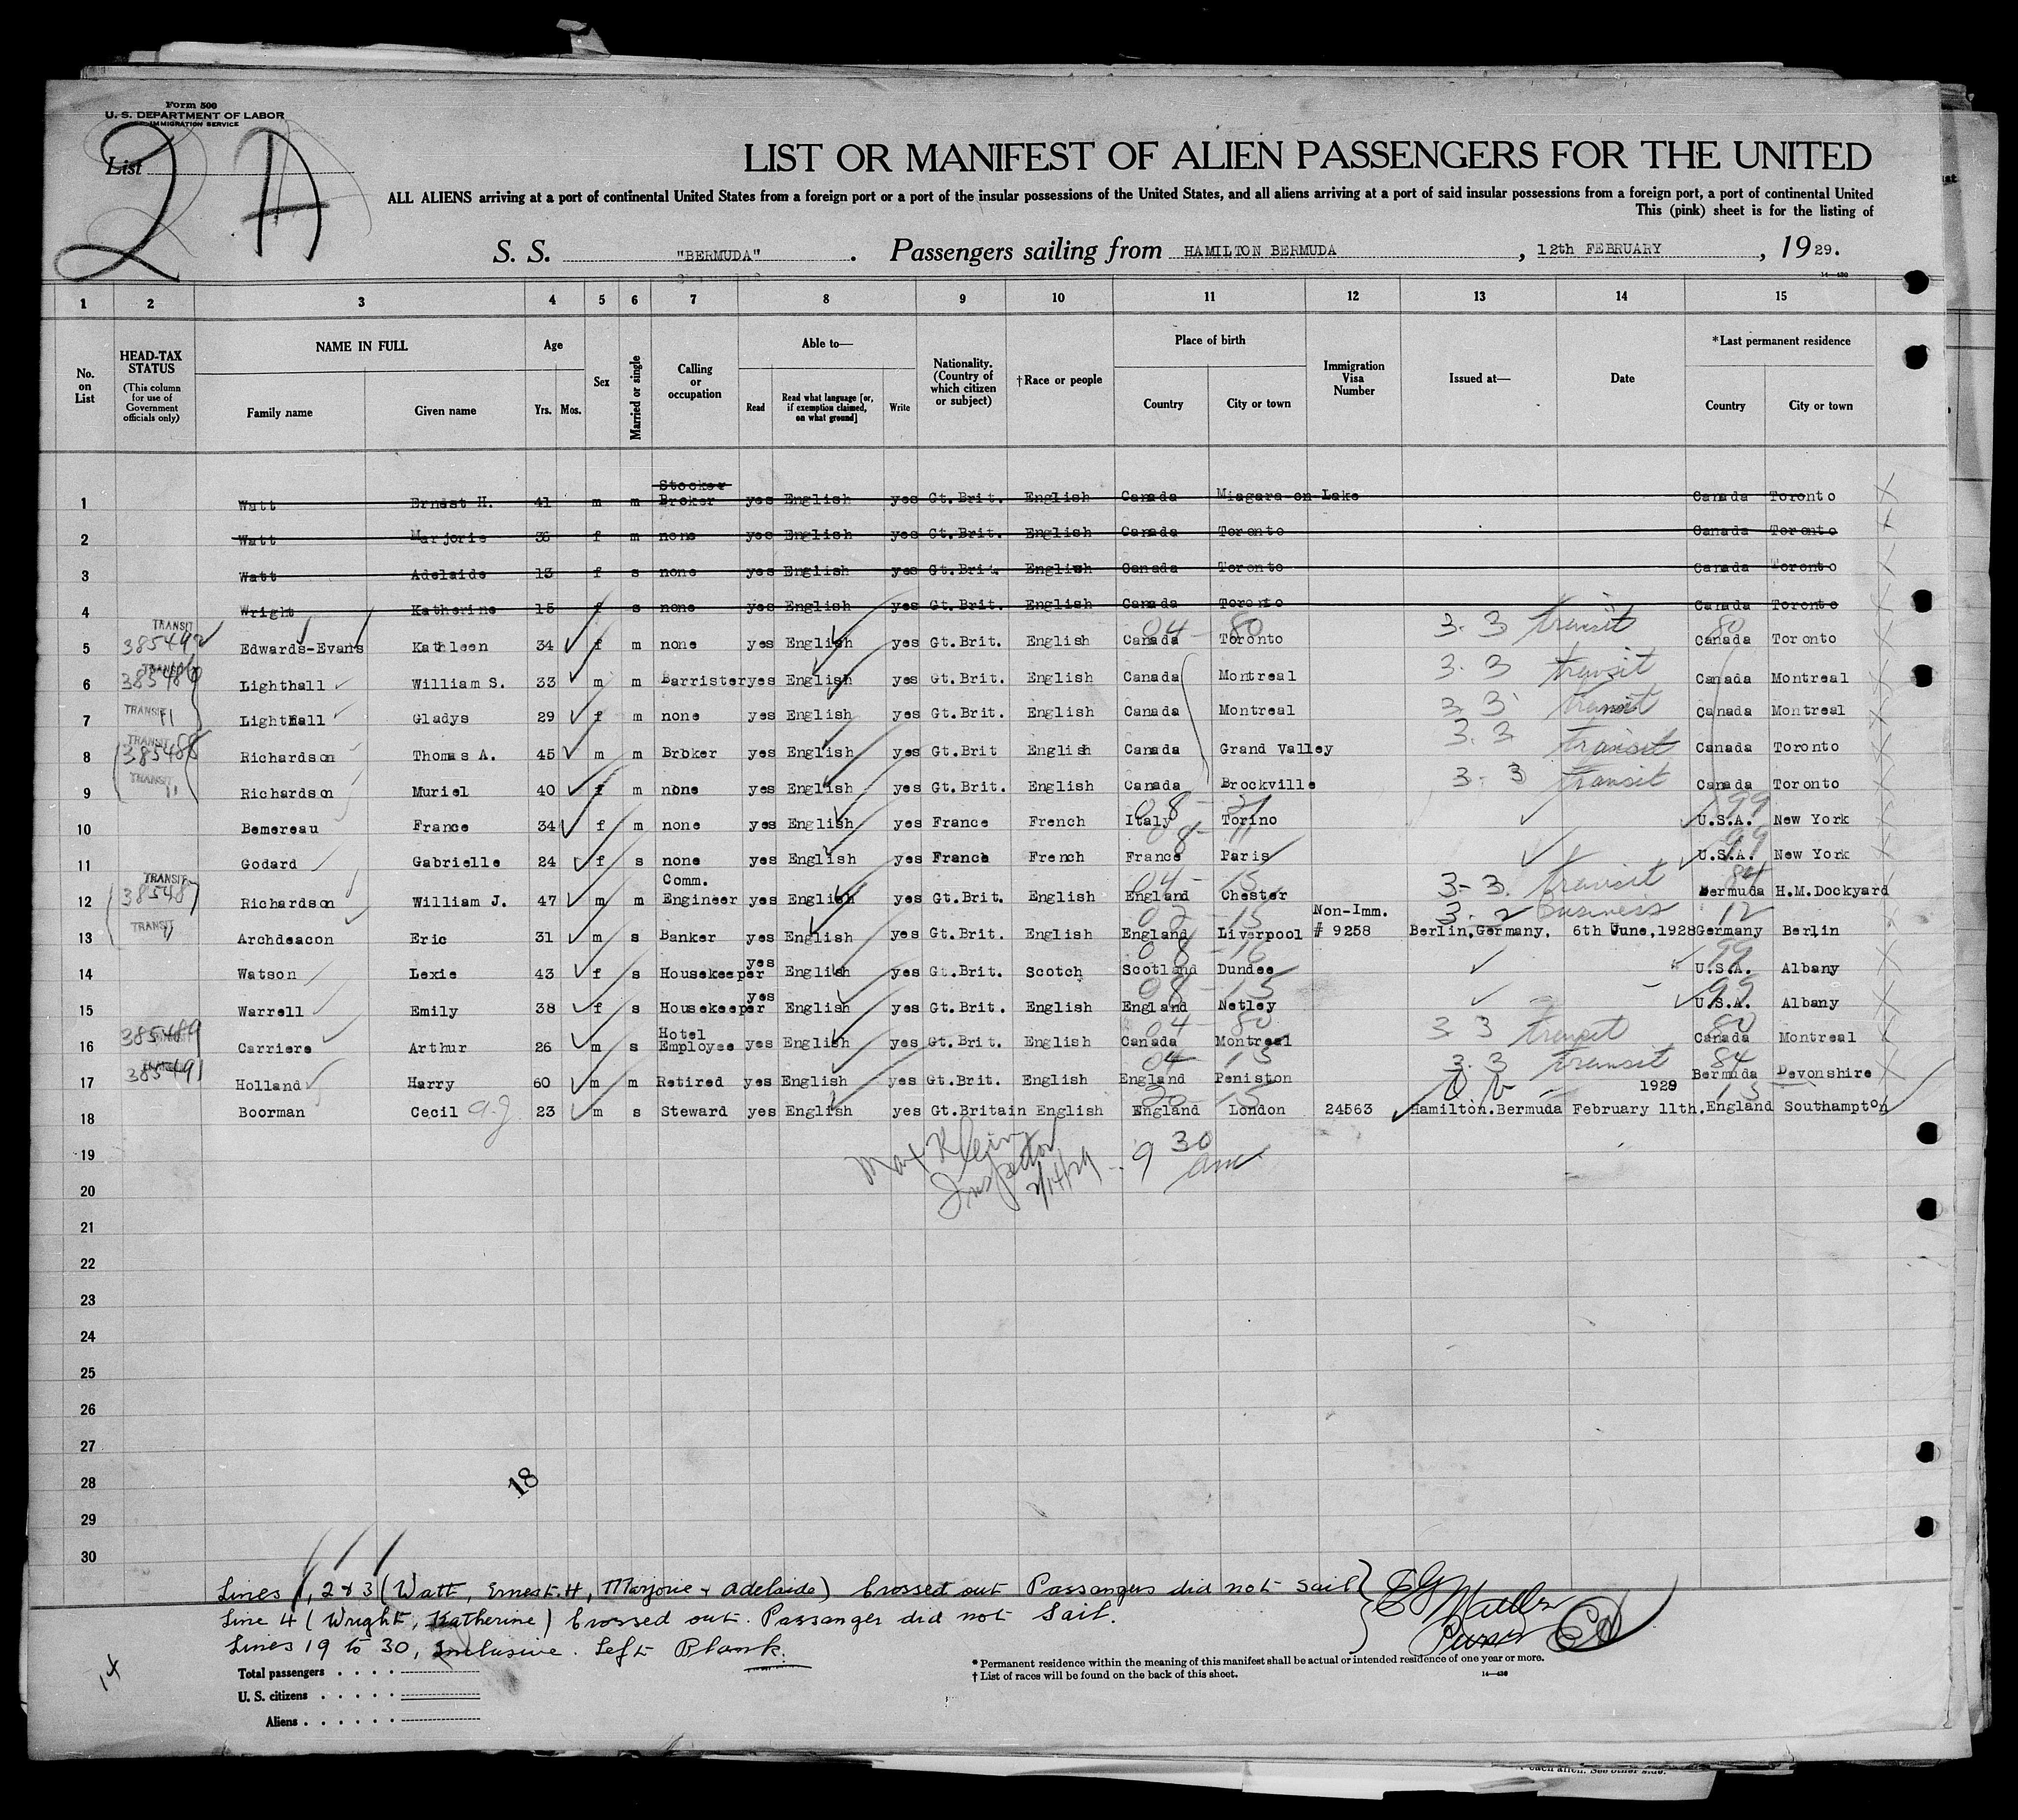 Form 500
U. S. DEPARTMENT OF LABOR
IMMIGRATION SERVICE
List
2 A
LIST OR MANIFEST OF ALIEN PASSENGERS FOR THE UNITED
ALL ALIENS arriving at a port of continental United States from a foreign port or a port of the insular possessions of the United States, and all aliens arriving at a port of said insular possessions from a foreign port, a port of continental United
This (pink) sheet is for the listing of
S. S. "BERMUDA". Passengers sailing from HAMILTON BERMUDA, 12th FEBRUARY, 1929.
1 2 3 4 5 6 7 8 9 10 11 12 13 14 15
No. on List
HEAD-TAX STATUS
(This column for use of Government officials only)
NAME IN FULL
Family name Given name
Age
Yrs. Mos.
Sex
Married or single
Calling or occupation
Able to—
Read Read what language [or, if exemption claimed, on what ground] Write
Nationality. (Country of which citizen or subject)
†Race or people
Place of birth
Country City or town
Immigration Visa Number
Issued at—
Date
*Last permanent residence
Country City or town
1 Watt Ernest H. 41 m m Stocker Broker yes English yes Gt.Brit. English Canada Miagara on Lake Canada Toronto
2 Watt Marjorie 36 f m none yes English yes Gt.Brit. English Canada Toronto Canada Toronto
3 Watt Adelaide 13 f s none yes English yes Gt.Brit. English Canada Toronto Canada Toronto
4 Wright Katherine 15 f s none yes English yes Gt.Brit. English Canada Toronto Canada Toronto
5 TRANSIT 385492 Edwards-Evans Kathleen 34 f m none yes English yes Gt.Brit. English Canada 04-80 Toronto 3.3 transit 80 Canada Toronto
6 TRANSIT 385486 Lighthall William S. 33 m m Barrister yes English yes Gt.Brit. English Canada Montreal 3 3 transit Canada Montreal
7 TRANSIT 11 Lighthall Gladys 29 f m none yes English yes Gt.Brit. English Canada Montreal 3 3 transit Canada Montreal
8 TRANSIT 385488 Richardson Thomas A. 45 m m Broker yes English yes Gt.Brit English Canada Grand Valley 3.3 transit Canada Toronto
9 TRANSIT 11 Richardson Muriel 40 f m none yes English yes Gt.Brit. English Canada Brockville 3-3 transit Canada Toronto
10 Bemereau France 34 f m none yes English yes France French Italy Torino 99 U.S.A. New York
11 Godard Gabrielle 24 f s none yes English yes France French France 08-11 Paris 99 U.S.A. New York
12 TRANSIT 385487 Richardson William J. 47 m m Comm. Engineer yes English yes Gt.Brit. English England 04-15 Chester 3-3. transit 84 Bermuda H.M.Dockyard
13 TRANSIT 11 Archdeacon Eric 31 m s Banker yes English yes Gt.Brit. English England 02-15 Liverpool Non-Imm. # 9258 3.2 Business Berlin,Germany. 6th June,1928 12 Germany Berlin
14 Watson Lexie 43 f s Housekeeper yes English yes Gt.Brit. Scotch Scotland 08-16 Dundee 99 U.S.A. Albany
15 Warrell Emily 38 f s Housekeeper yes English yes Gt.Brit. English England 08-15 Netley 99 U.S.A. Albany
16 385489 Carriere Arthur 26 m s Hotel Employee yes English yes Gt.Brit. English Canada 04-80 Montreal 3 3 transit 80 Canada Montreal
17 385491 Holland Harry 60 m m Retired yes English yes Gt.Brit. English England 04 15 Peniston 3.3 transit 84 Bermuda Devonshire
18 Boorman Cecil A.J. 23 m s Steward yes English yes Gt.Britain English England London 24563 Hamilton.Bermuda February 11th. 1929 15 England Southampton
19 Max Klein
Inspector
2/14/29 - 9 30 am
20
21
22
23
24
25
26
27
28
29
30
18
Lines 1, 2 & 3 (Watt, Ernest. H, Marjorie & Adelaide) Crossed out Passangers did not Sail
Line 4 (Wright, Katherine) Crossed out. Passanger did not Sail.
Lines 19 to 30, Inclusive. Left Blank.
Purser
14
Total passengers . . . .
U. S. citizens . . . . .
Aliens . . . . . .
* Permanent residence within the meaning of this manifest shall be actual or intended residence of one year or more.
† List of races will be found on the back of this sheet.
14—430